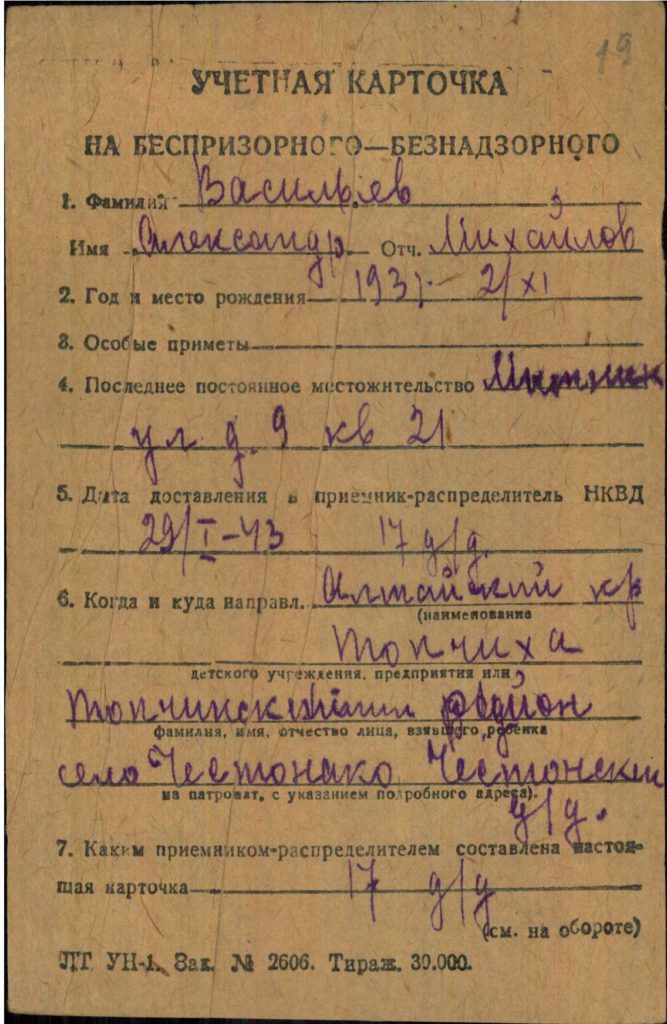 19
УЧЕТНАЯ КАРТОЧКА
НА БЕСПРИЗОРНОГО—БЕЗНАДЗОРНОГО
1. Фамилия Васильев
Имя Александр Отч. Михайлов
2. Год и место рождения 1937 2/XI
3. Особые приметы
4. Последнее постоянное местожительство
ул д. 9 кв 21
5. Дата доставления в приемник-распределитель НКВД
29/I-43 17 д/д.
6. Когда и куда направл. Алтайский кр
(наименование
Топчиха
детского учреждения, предприятия или
район
фамилия, имя, отчество лица, взявшего ребенка
село
на патронат, с указанием подробного адреса).
д/д.
7. Каким приемником-распределителем составлена настоя-
щая карточка 17 д/д
(см. на обороте)
ЛГ УН-1. Зак. № 2606. Тираж. 30.000.